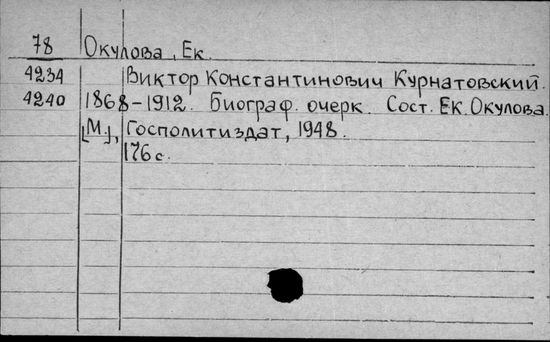 78 Окулова, Ек.
4234 Виктор Константинович Курнатовский.
4240 1868-1912. Биограф. очерк. Сост. Ек. Окулова.
[М.], Госполитиздат, 1948.
176с.